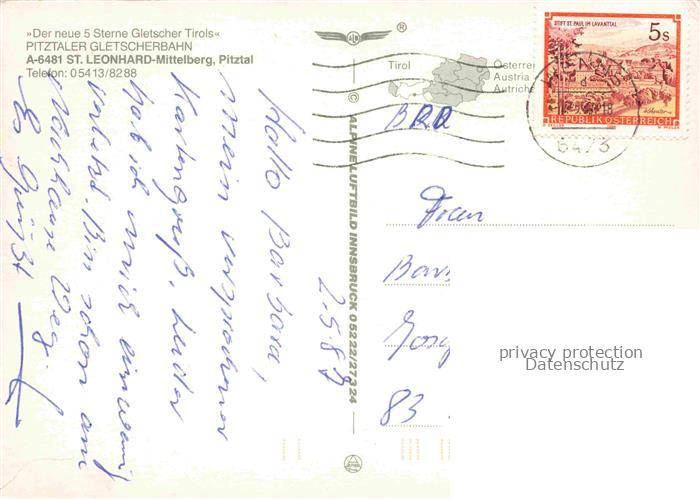 »Der neue 5 Sterne Gletscher Tirols«
PITZTALER GLETSCHERBAHN
A-6481 ST. LEONHARD-Mittelberg, Pitztal
Telefon: 05413/8288
Hallo Barbara,
mein versprochener
Kartengruß. Leider
hab ich mich
Bin schon am
Weg.
Es Grüßt
2.5.87
© ALPINE LUFTBILD INNSBRUCK 05222/27324
®
Tirol
Österre
Austria
Autrich
STIFT ST. PAUL IM LAVANTTAL
5s
REPUBLIK ÖSTERREICH
6473
BRD
Frau
Bar
83
privacy protection
Datenschutz